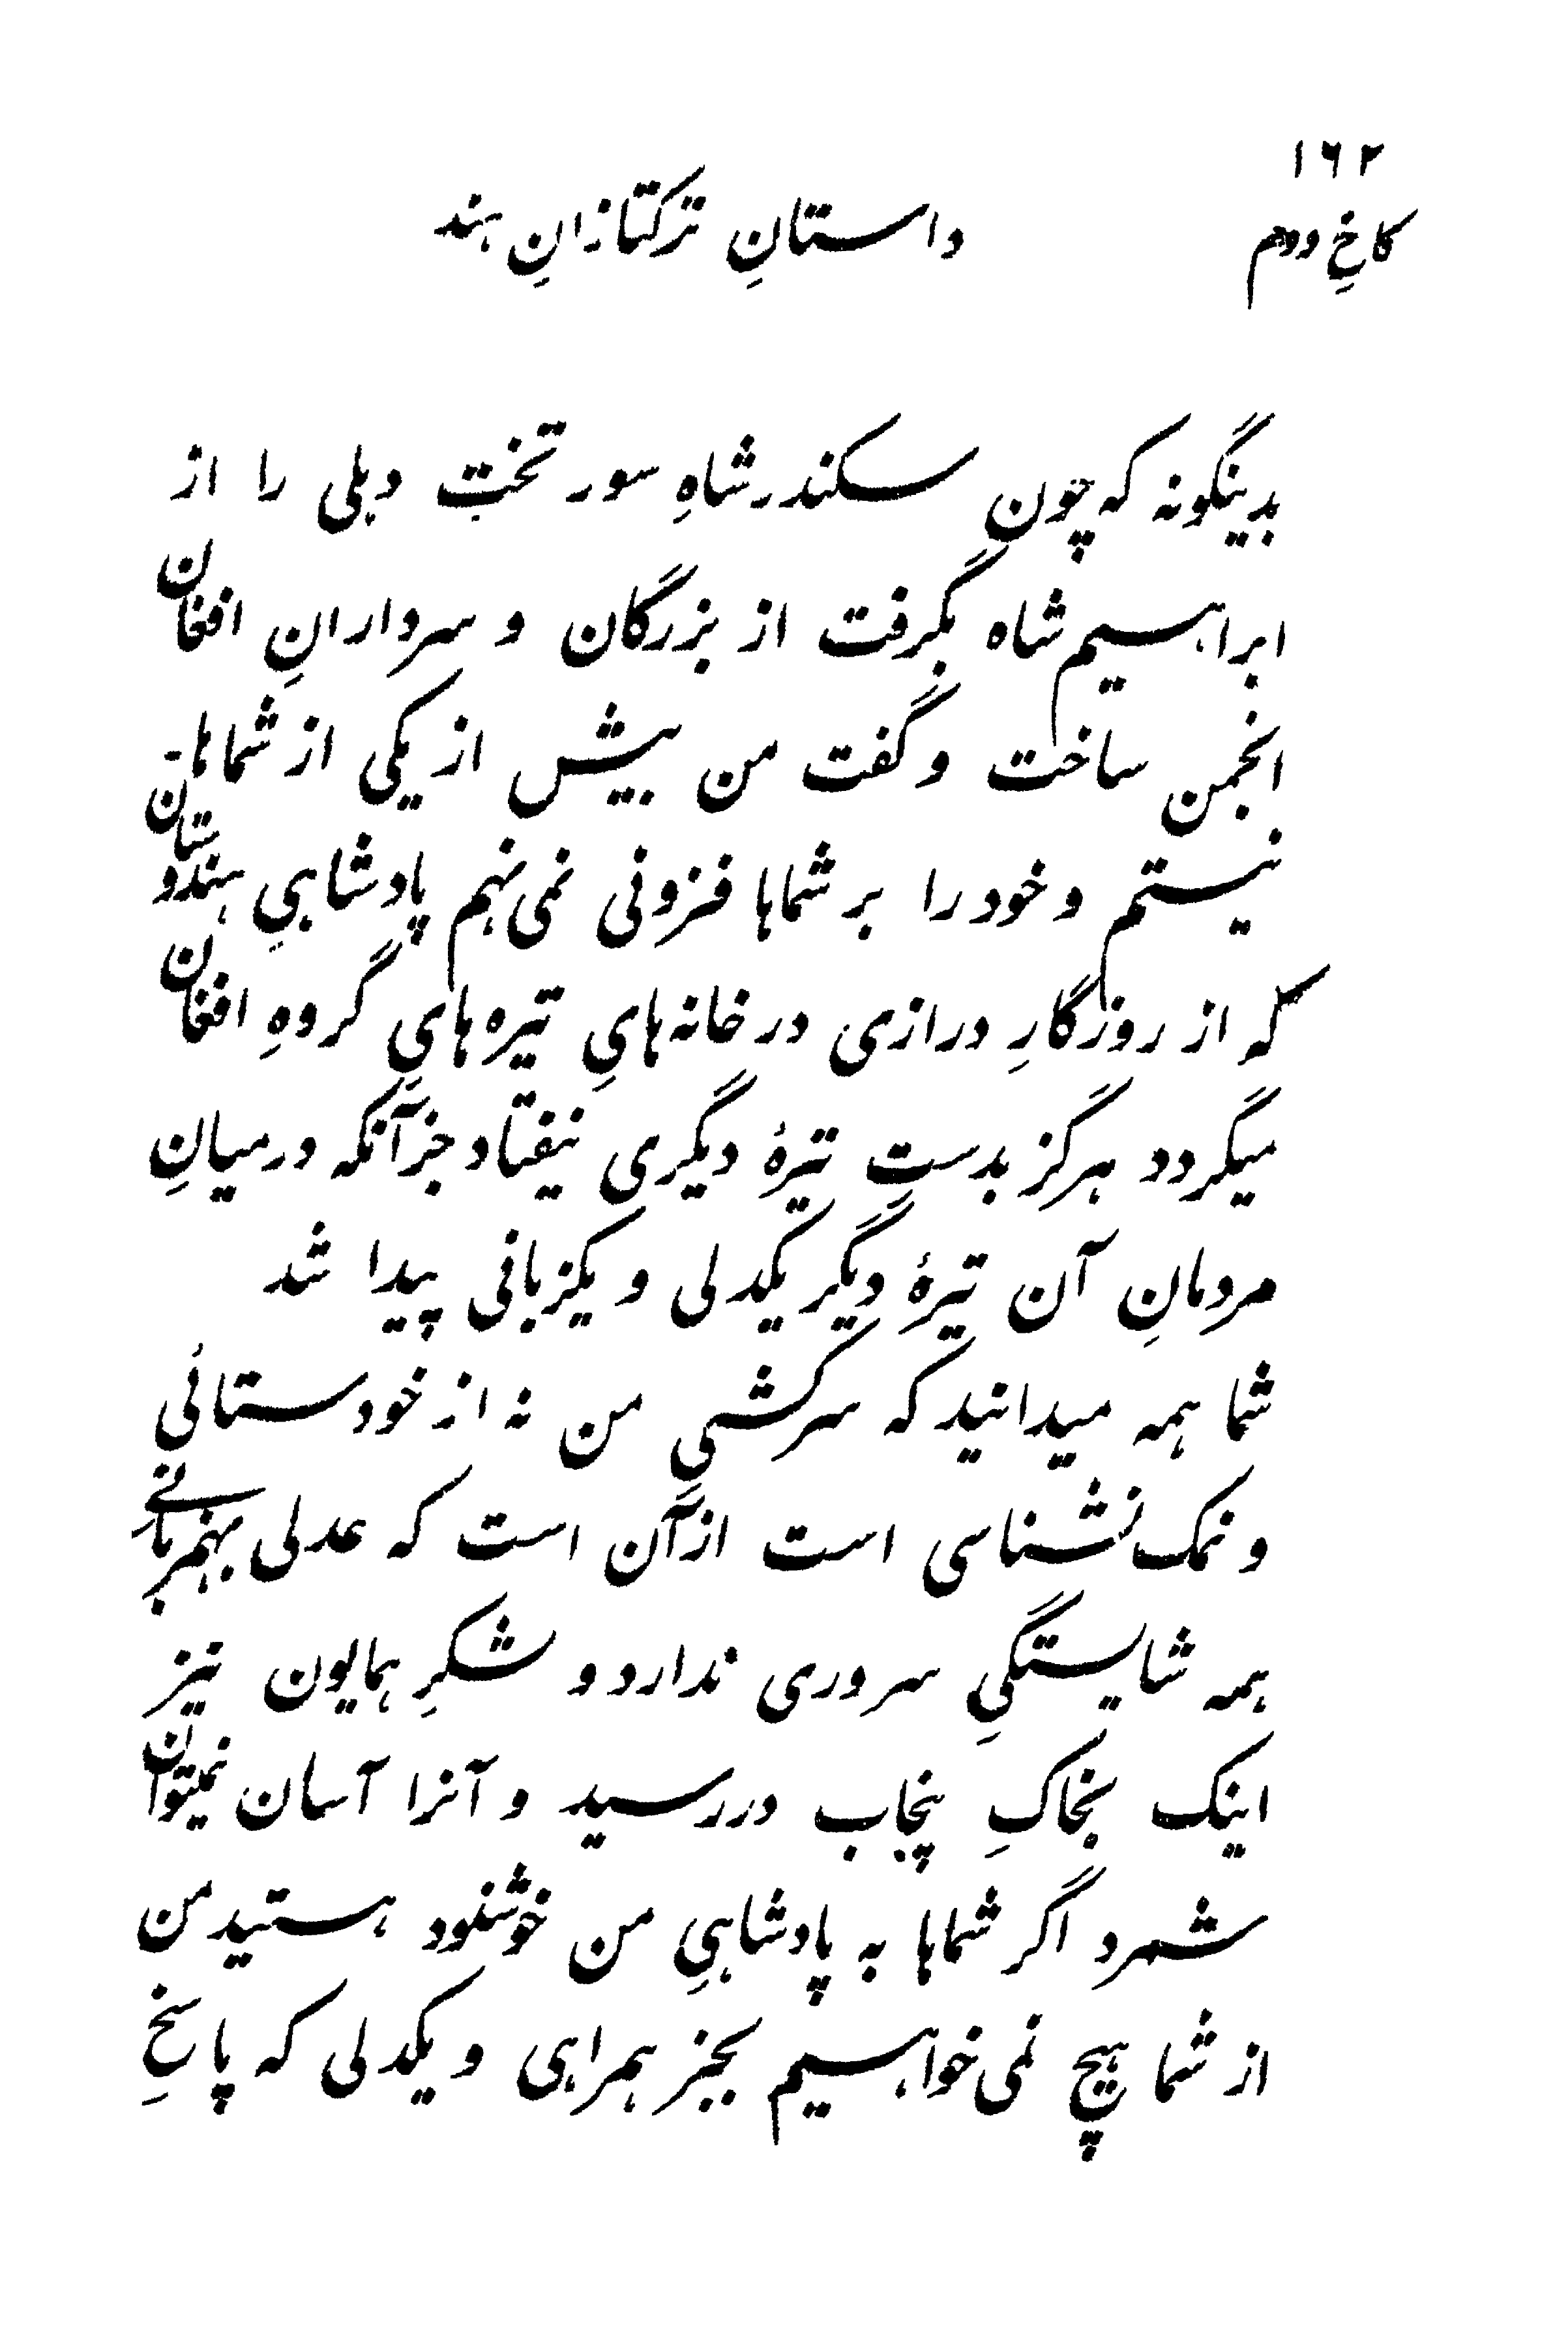 ۱۶۲
کاخِ دوم داستانِ ترکتازانِ هند
بدینگونه که چون سکندر شاهِ سور تختِ دهلی را از
ابراهیم شاه بگرفت از بزرگان و سردارانِ افغان
انجمن ساخت و گفت من بیش از یکی از شماها-
نیستم و خود را بر شماها فزونی نمی نهم پادشاهیِ هندوستان
که از روزگارِ درازی در خانه هایِ تیره هایِ گروهِ افغان
میگردد هرگز بدستِ تیرهٔ دیگری نیفتاد جز آنکه درمیانِ
مردمانِ آن تیرهٔ دیگر یکدلی و یکزبانی پیدا شد
شما همه میدانید که سرکشیِ من نه از خودستائی
و نمک نشناسی است از آن است که عدلی
همه شایستگیِ سروری ندارد و لشکرِ همایون نیز
اینک بخاکِ پنجاب در رسید و آنرا آسان نمیتوان
شمرد اگر شماها به پادشاهیِ من خوشنود هستید من
از شما هیچ نمی خواهیم بجز همراهی و یکدلی که پاسخِ